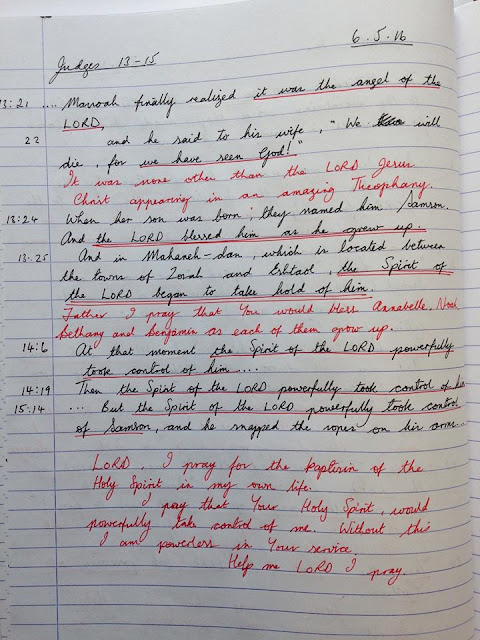 6.5.16
Judges 13-15
13:21 .... Manoah finally realized it was the angel of the
LORD,
22 and he said to his wife, "We will
die, for we have seen God!"
It was none other than the LORD Jesus
Christ appearing in an amazing Theophany.
13:24 When her son was born, they named him Samson.
And the LORD blessed him as he grew up.
13:25 And in Mahaneh-dan, which is located between
the towns of Zorah and Eshtaol, the Spirit of
the LORD began to take hold of him.
Father I pray that You would bless Annabelle, Noah
Bethany and Benjamin as each of them grow up.
14:6 At that moment the Spirit of the LORD powerfully
took control of him ....
14:19 Then the Spirit of the LORD powerfully took control of him
15:14 ... But the Spirit of the LORD powerfully took control
of Samson, and he snapped the ropes on his arms...
LORD, I pray for the baptism of the
Holy Spirit in my own life.
I pray that Your Holy Spirit, would
powerfully take control of me. Without this
I am powerless in Your service.
Help me LORD I pray.